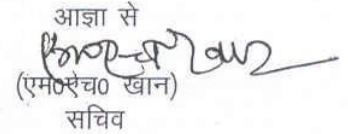 आज्ञा से
(एम०ऐच० खान)
सचिव